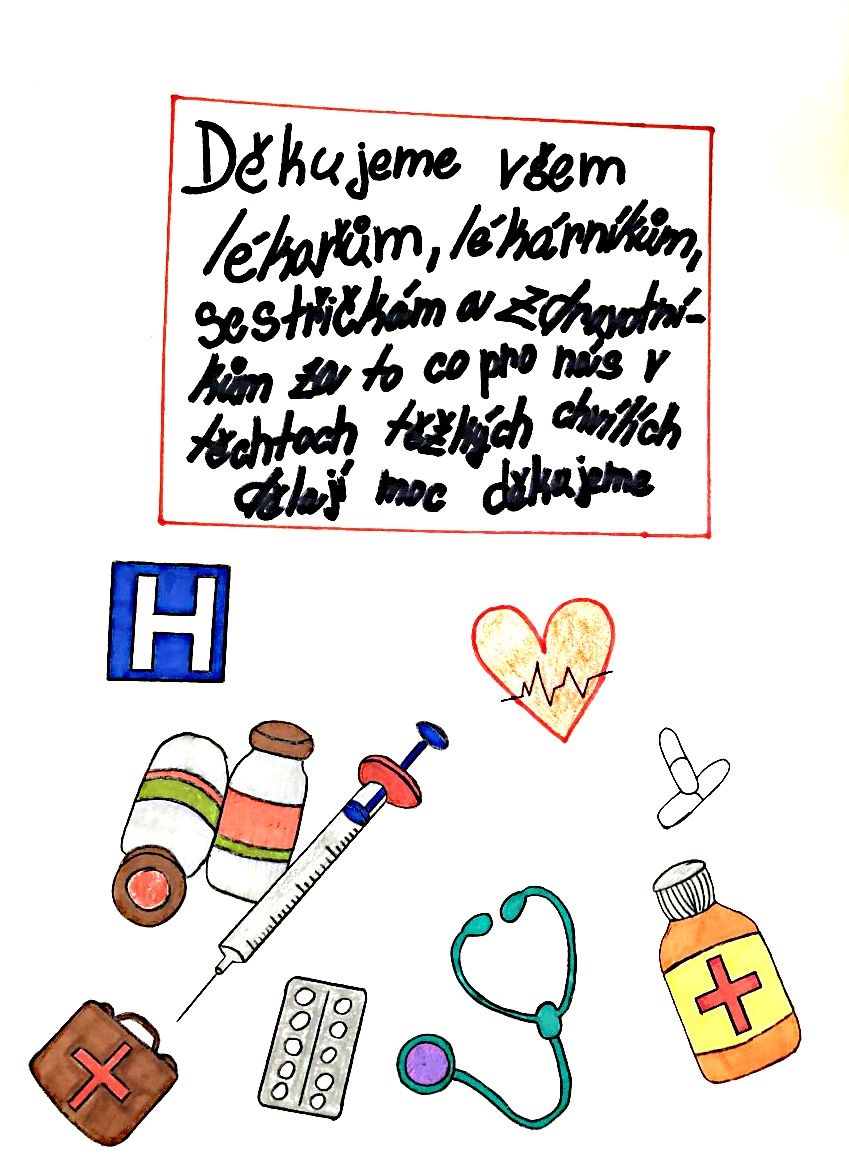 Děkujeme všem
lékařům, lékárníkům,
sestřičkám a zdravotní-
kům za to co pro nás v
těchtoch těžkých chvílích
dělají moc děkujeme
H